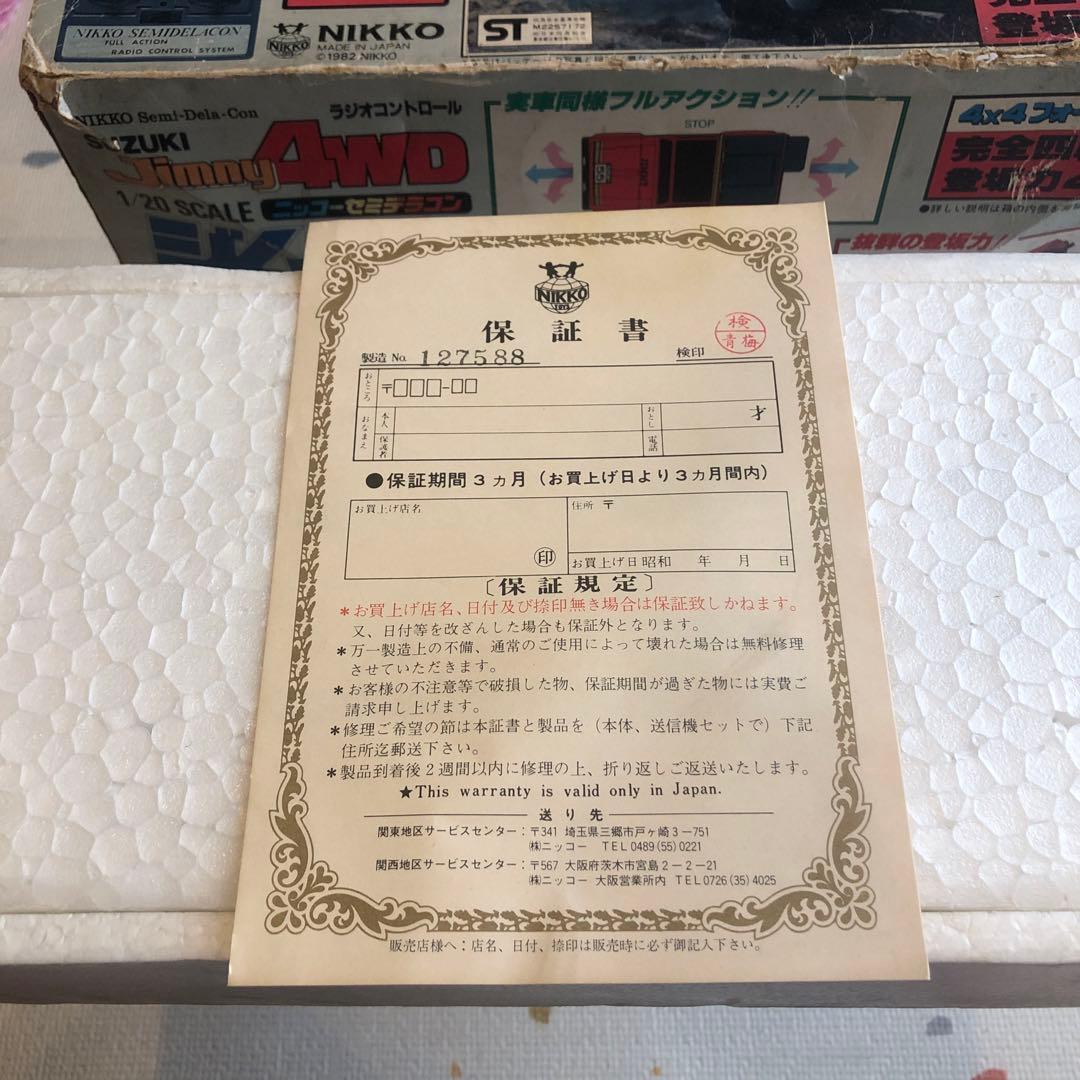 NIKKO SEMIDELACON
FULL ACTION
RADIO CONTROL SYSTEM
NIKKO
NIKKO
MADE IN JAPAN
©1982 NIKKO
ST
M2257172
NIKKO Semi-Dela-Con
SUZUKI
ラジオコントロール
Jimny 4WD
1/20 SCALE
ニッコーセミデラコン
実車同様フルアクション!!
STOP
抜群の登坂力!!
NIKKO
保証書
検
青梅
製造 No. 127588
検印
おところ
〒□□□-□□
おなまえ
本人
保護者
おとし
才
電話
●保証期間3ヵ月(お買上げ日より3ヵ月間内)
お買上げ店名
印
住所 〒
お買上げ日 昭和 年 月 日
〔保証規定〕
*お買上げ店名、日付及び捺印無き場合は保証致しかねます。
又、日付等を改ざんした場合も保証外となります。
*万一製造上の不備、通常のご使用によって壊れた場合は無料修理
させていただきます。
*お客様の不注意等で破損した物、保証期間が過ぎた物には実費ご
請求申し上げます。
*修理ご希望の節は本証書と製品を(本体、送信機セットで)下記
住所迄郵送下さい。
*製品到着後2週間以内に修理の上、折り返しご返送いたします。
★This warranty is valid only in Japan.
送り先
関東地区サービスセンター:〒341 埼玉県三郷市戸ヶ崎3-751
㈱ニッコー TEL0489(55)0221
関西地区サービスセンター:〒567 大阪府茨木市宮島2-2-21
㈱ニッコー 大阪営業所内 TEL0726(35)4025
販売店様へ:店名、日付、捺印は販売時に必ず御記入下さい。